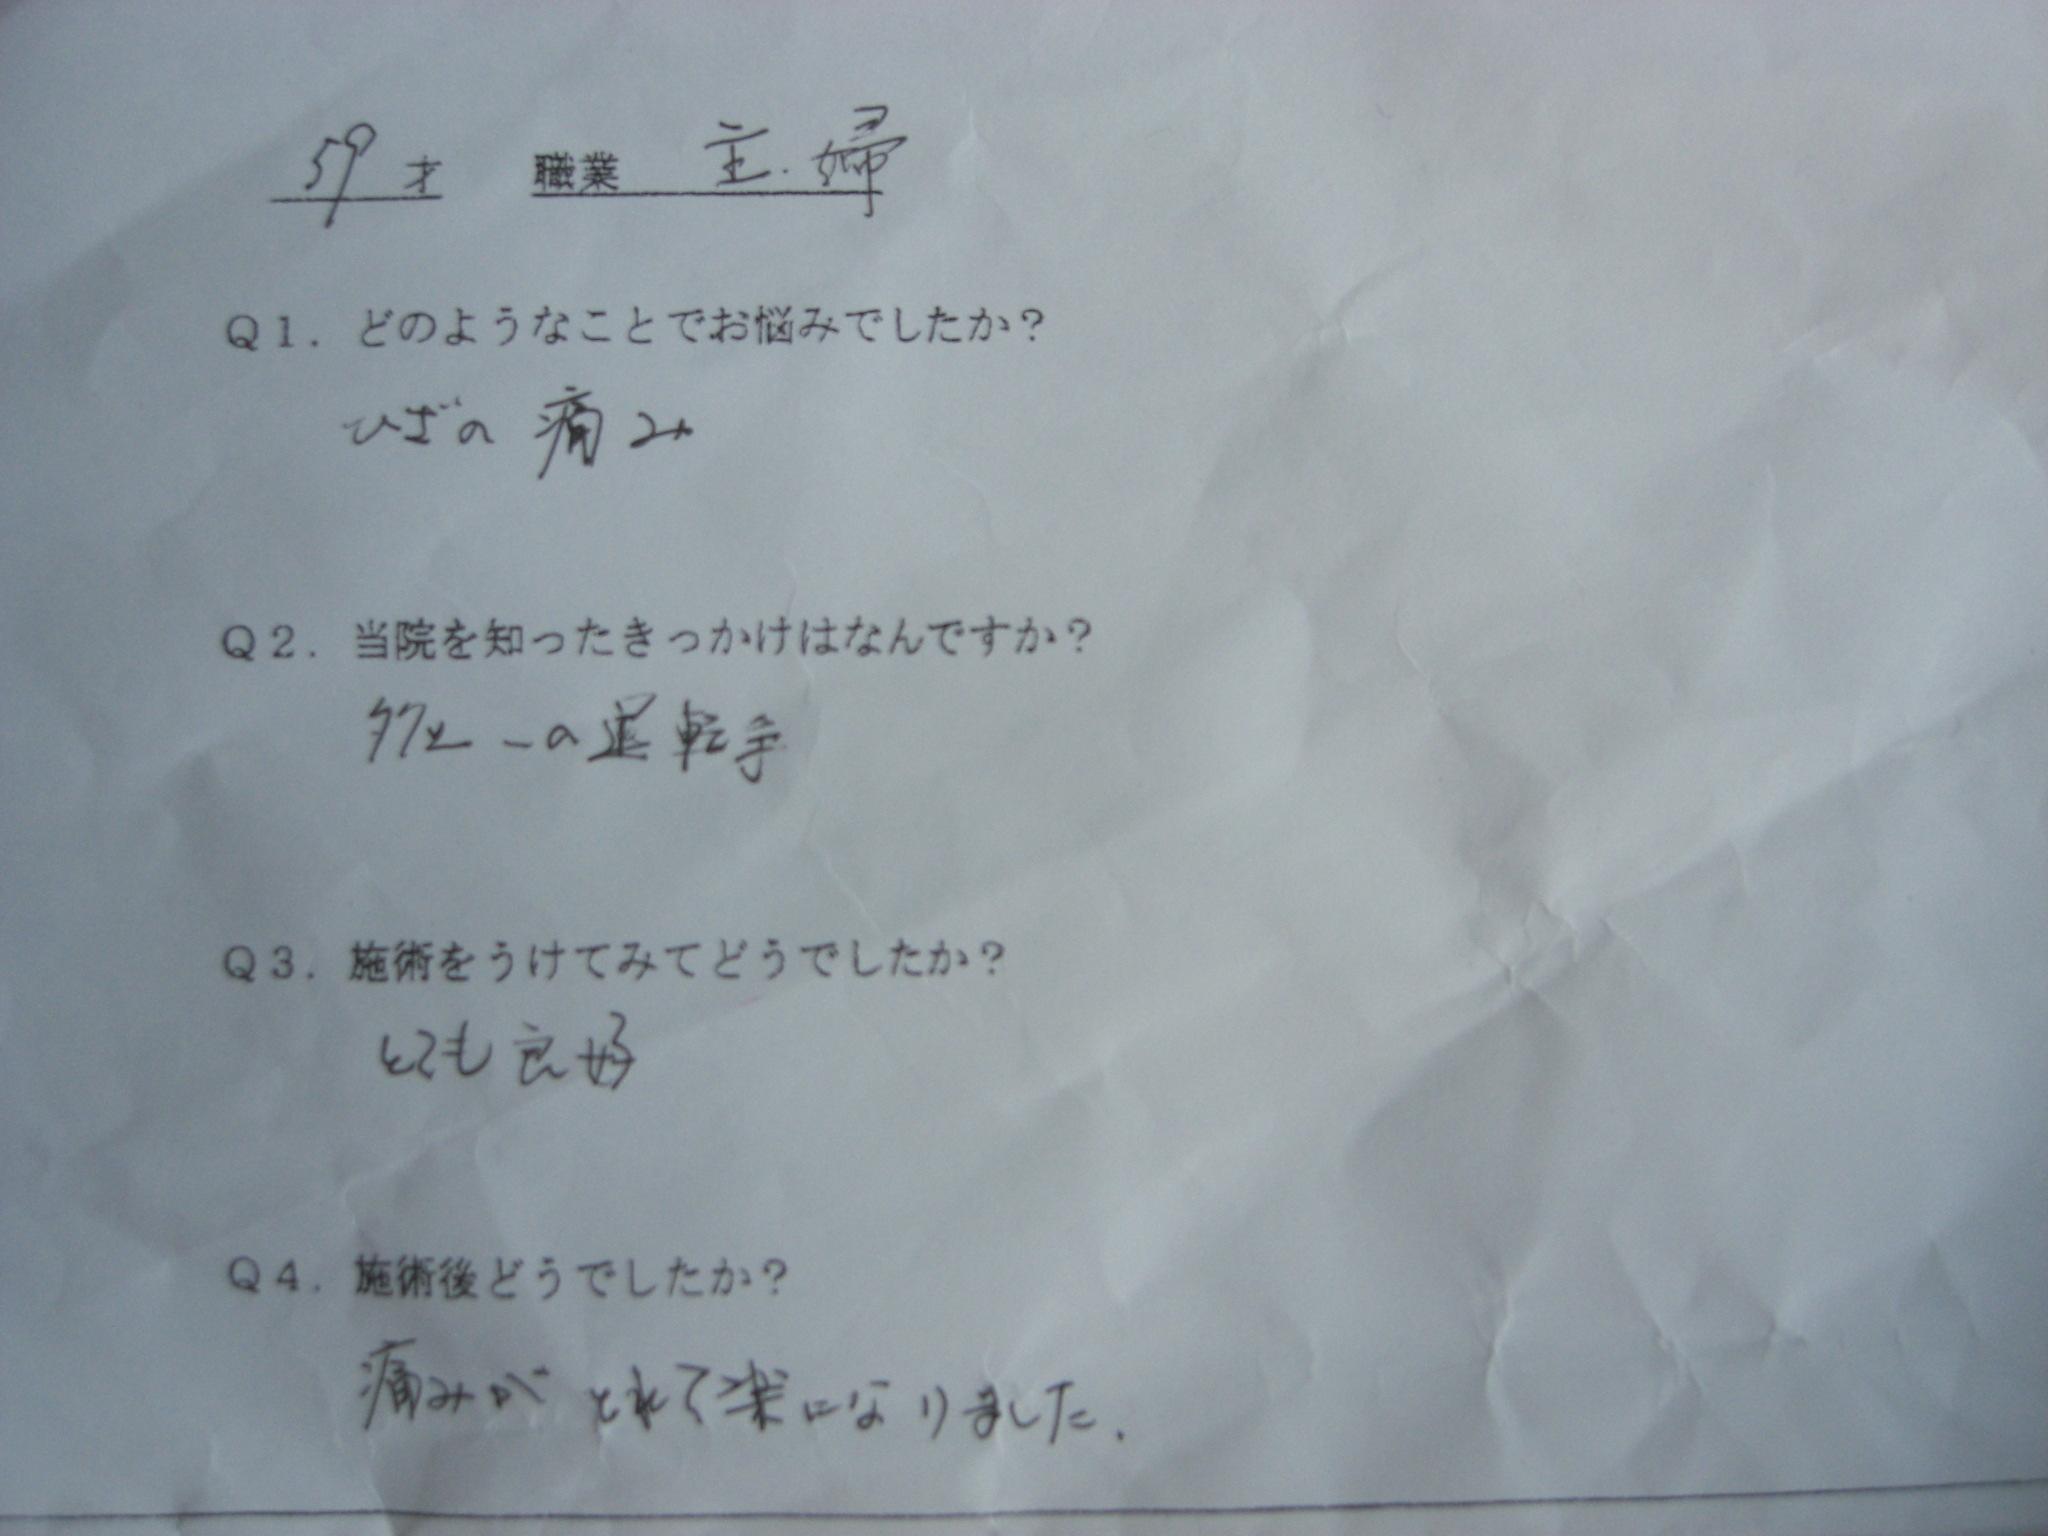 59才 職業 主.婦
Q1. どのようなことでお悩みでしたか?
ひざの痛み
Q2. 当院を知ったきっかけはなんですか?
タクシーの運転手
Q3. 施術をうけてみてどうでしたか?
とても良好
Q4. 施術後どうでしたか?
痛みがとれて楽になりました.